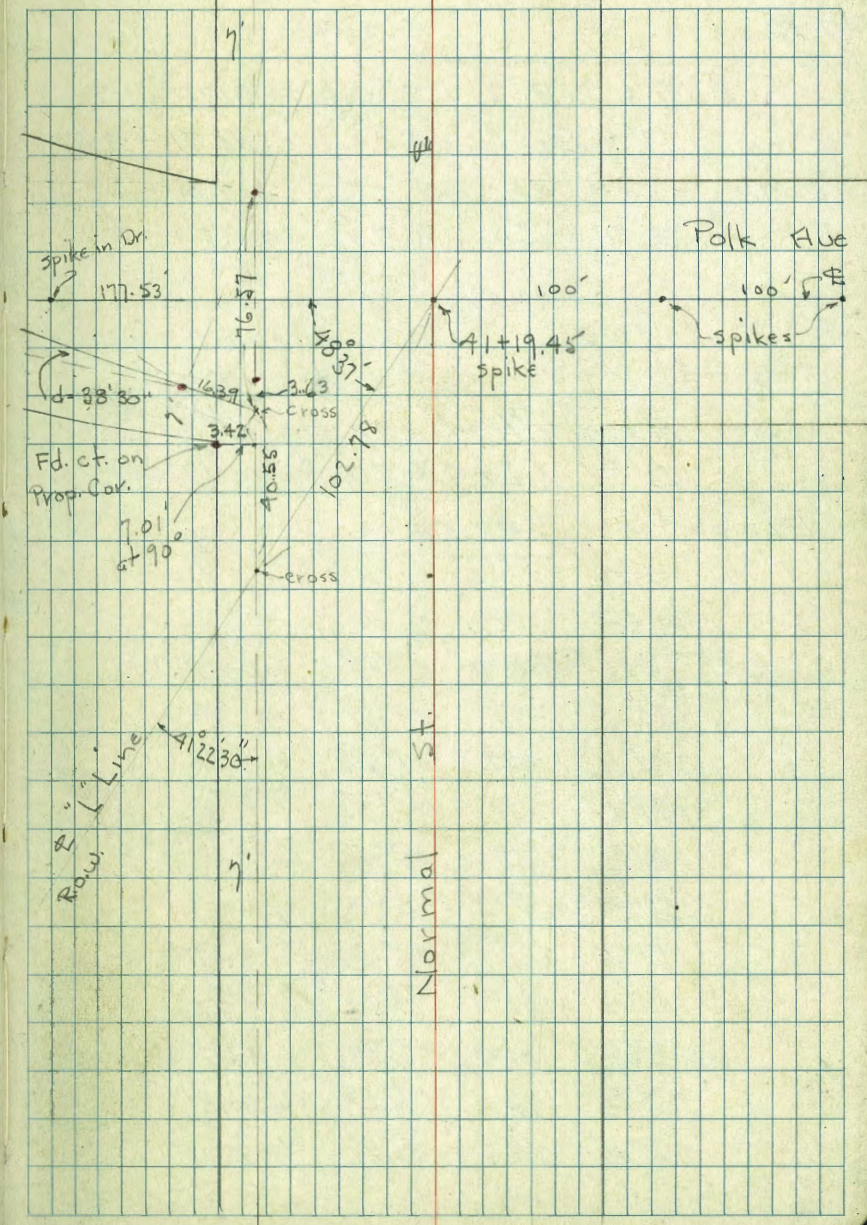 7'
℄
Polk Ave
Spike in Dr.
177.53'
76.57
100'
100'
℄
41+19.45
Spike
Spikes
48°37'
d=38'30"
16.39
3.63
Cross
7'
3.42
Fd. ct. on
Prop. Cor.
40.55
102.78
7.01'
at 90°
cross
41°22'30"
℄ "L" Line
R.O.W.
7'
Normal St.